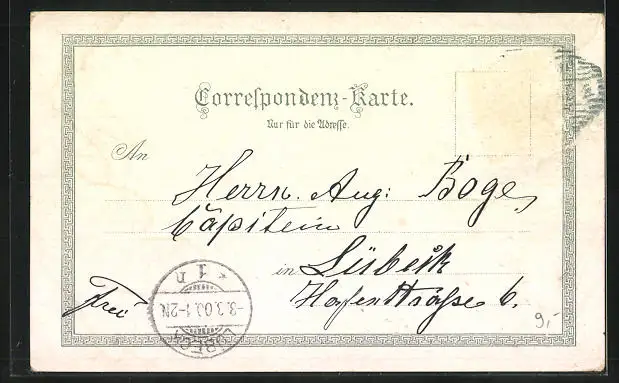 Correspondenz-Karte.
Nur für die Adresse.
An
Herrn. Aug: Boge,
Cäpitein
in Lübeck
Hafenstraße 6.
Frei
* 1 n
-3.3.00. 1-2N.
LÜBECK
9,-